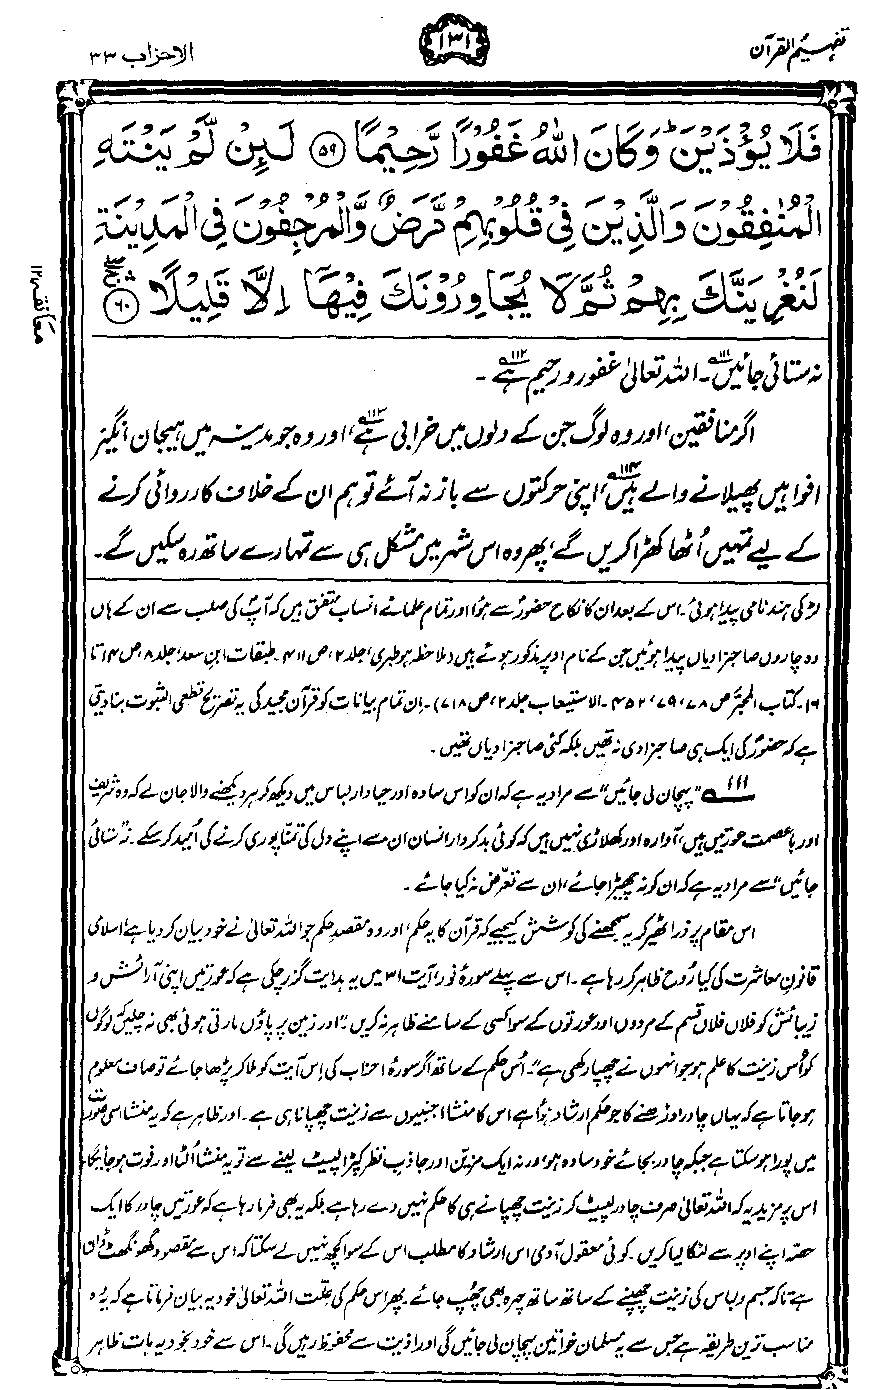 تفہیم القرآن
۱۳۱
الاحزاب ۳۳
فَلَا يُؤْذَيْنَ ؕ وَكَانَ اللّٰهُ غَفُوْرًا رَّحِيْمًا ﴿۵۹﴾ لَىِٕنْ لَّمْ يَنْتَهِ
الْمُنٰفِقُوْنَ وَالَّذِيْنَ فِيْ قُلُوْبِهِمْ مَّرَضٌ وَّالْمُرْجِفُوْنَ فِي الْمَدِيْنَةِ
لَنُغْرِيَنَّكَ بِهِمْ ثُمَّ لَا يُجَاوِرُوْنَكَ فِيْهَاۤ اِلَّا قَلِيْلًا ﴿۶۰﴾
معانقہ ۱۲
نہ ستائی جائیں۱۱۱۔ اللہ تعالیٰ غفور و رحیم ہے۱۱۲۔
اگر منافقین، اور وہ لوگ جن کے دلوں میں خرابی ہے۱۱۳، اور وہ جو مدینہ میں ہیجان انگیز
افواہیں پھیلانے والے ہیں۱۱۴، اپنی حرکتوں سے باز نہ آئے تو ہم ان کے خلاف کارروائی کرنے
کے لیے تمہیں اُٹھا کھڑا کریں گے، پھر وہ اس شہر میں مشکل ہی سے تمہارے ساتھ رہ سکیں گے۔
لڑکی ہند نامی پیدا ہوئی۔ اس کے بعد ان کا نکاح حضورؐ سے ہُوا اور تمام علمائے انساب متفق ہیں کہ آپؐ کی صلب سے ان کے ہاں
وہ چاروں صاحبزادیاں پیدا ہوئیں جن کے نام اوپر مذکور ہوئے ہیں (ملاحظہ ہو طبری، جلد ۲، ص ۴۱۱۔ طبقات ابن سعد، جلد ۸، ص ۱۴ تا
۱۶۔ کتاب المحبَّر ص ۷۸، ۷۹، ۴۵۲۔ الاستیعاب جلد ۲، ص ۷۱۸)۔ اِن تمام بیانات کو قرآن مجید کی یہ تصریح قطعی الثبوت بنا دیتی
ہے کہ حضورؐ کی ایک ہی صاحبزادی نہ تھیں بلکہ کئی صاحبزادیاں تھیں۔
۱۱۱ ”پہچان لی جائیں“ سے مراد یہ ہے کہ ان کو اس سادہ اور حیادار لباس میں دیکھ کر ہر دیکھنے والا جان لے کہ وہ شریف
اور باعصمت عورتیں ہیں، آوارہ اور کھلاڑی نہیں ہیں کہ کوئی بدکردار انسان ان سے اپنے دل کی تمنا پوری کرنے کی اُمید کر سکے۔ ”نہ ستائی
جائیں“ سے مراد یہ ہے کہ ان کو نہ چھیڑا جائے، ان سے تعرّض نہ کیا جائے۔
اس مقام پر ذرا ٹھیر کر یہ سمجھنے کی کوشش کیجیے کہ قرآن کا یہ حکم، اور وہ مقصدِ حکم جو اللہ تعالیٰ نے خود بیان کر دیا ہے، اسلامی
قانونِ معاشرت کی کیا رُوح ظاہر کر رہا ہے۔ اس سے پہلے سورۂ نُور، آیت ۳۱ میں یہ ہدایت گزر چکی ہے کہ عورتیں اپنی آرائش و
زیبائش کو فلاں فلاں قسم کے مردوں اور عورتوں کے سوا کسی کے سامنے ظاہر نہ کریں۔ ”اور زمین پر پاؤں مارتی ہوئی بھی نہ چلیں کہ لوگوں
کو اُس زینت کا علم ہو جو انہوں نے چھپا رکھی ہے“۔ اُس حکم کے ساتھ اگر سورۂ احزاب کی اِس آیت کو ملا کر پڑھا جائے تو صاف معلوم
ہو جاتا ہے کہ یہاں چادر اوڑھنے کا جو حکم ارشاد ہُوا ہے اس کا منشا اجنبیوں سے زینت چھپانا ہی ہے۔ اور ظاہر ہے کہ یہ منشا اسی صورت
میں پورا ہو سکتا ہے جبکہ چادر بجائے خود سادہ ہو، ورنہ ایک مزیّن اور جاذب نظر کپڑا لپیٹ لینے سے تو یہ منشا اُلٹا اور فوت ہو جائیگا۔
اس پر مزید یہ کہ اللہ تعالیٰ صرف چادر لپیٹ کر زینت چھپانے ہی کا حکم نہیں دے رہا ہے بلکہ یہ بھی فرما رہا ہے کہ عورتیں چادر کا ایک
حصّہ اپنے اوپر سے لٹکا لیا کریں۔ کوئی معقول آدمی اس ارشاد کا مطلب اس کے سوا کچھ نہیں لے سکتا کہ اس سے مقصود گھونگھٹ ڈالنا
ہے تاکہ جسم و لباس کی زینت چھپنے کے ساتھ ساتھ چہرہ بھی چھُپ جائے۔ پھر اس حکم کی علّت اللہ تعالیٰ خود یہ بیان فرماتا ہے کہ یہ وہ
مناسب ترین طریقہ ہے جس سے یہ مسلمان خواتین پہچان لی جائیں گی اور اذیت سے محفوظ رہیں گی۔ اس سے خود بخود یہ بات ظاہر